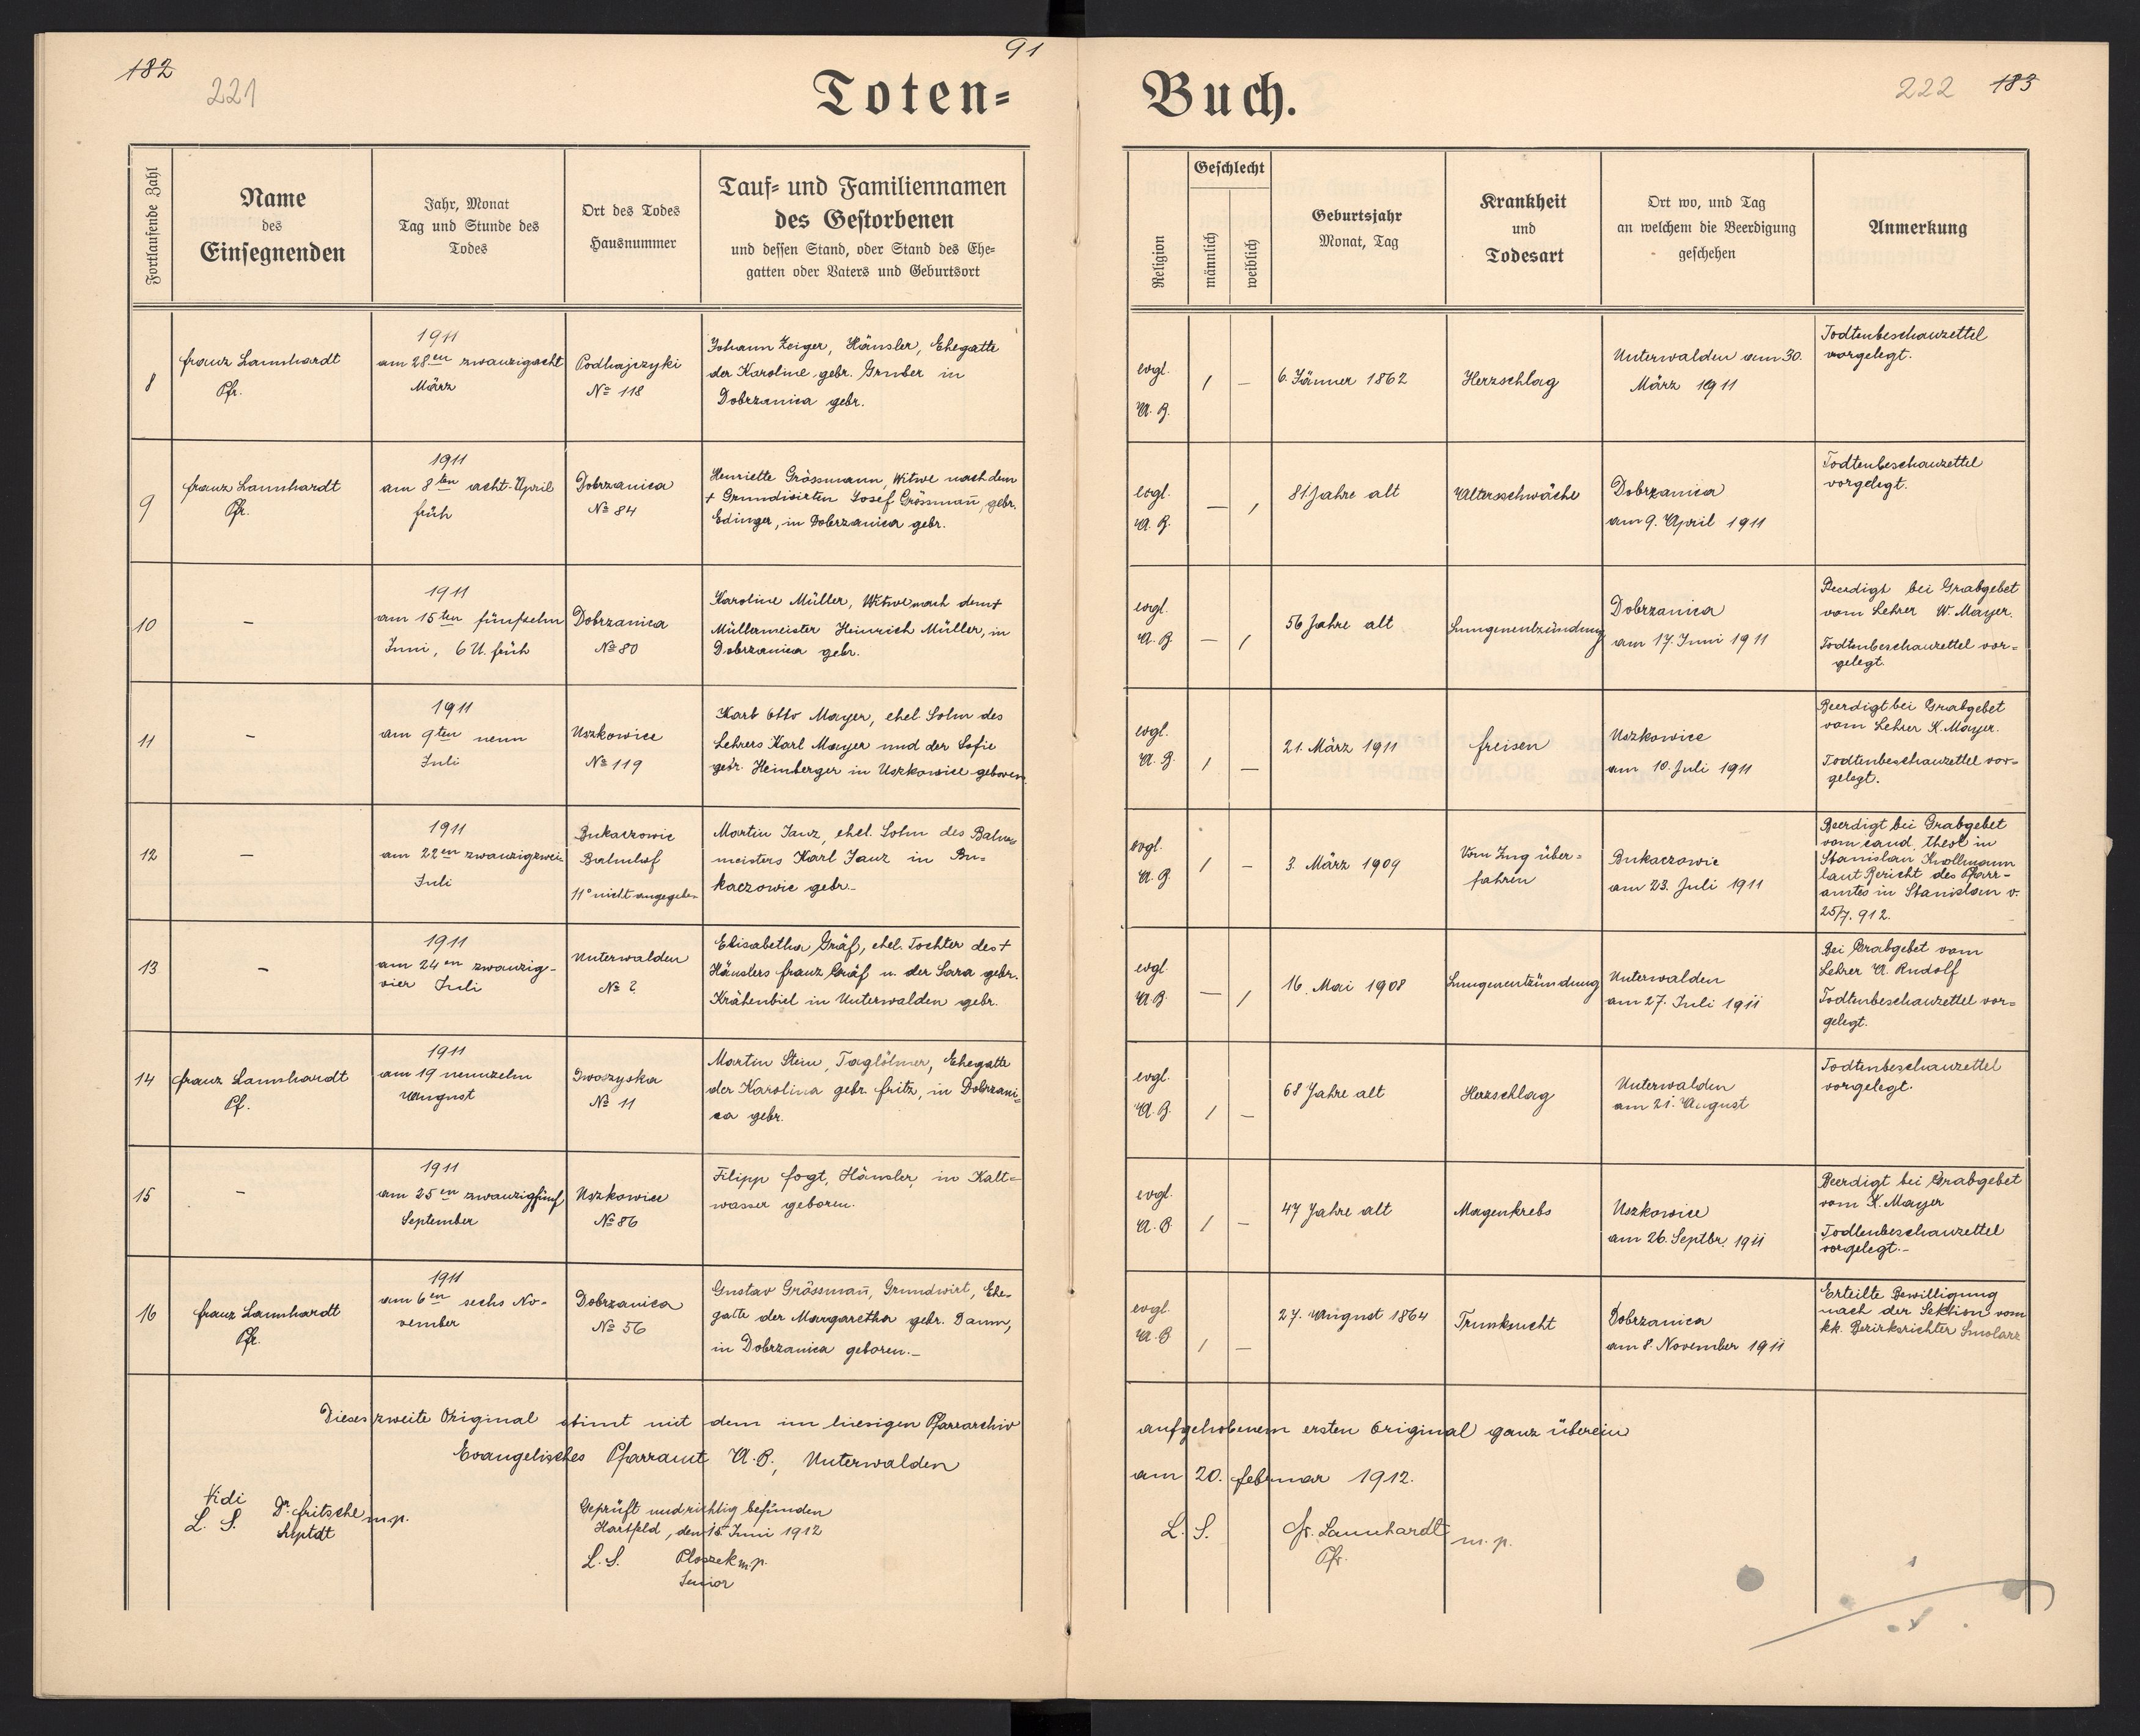 182
221
91
Toten=
Buch.
222
183
Fortlaufende Zahl
Name
des
Einsegnenden
Jahr, Monat
Tag und Stunde des
Todes
Ort des Todes
Hausnummer
Tauf= und Familiennamen
des Gestorbenen
und dessen Stand, oder Stand des Ehe=
gatten oder Vaters und Geburtsort
Religion
Geschlecht
männlich
weiblich
Geburtsjahr
Monat, Tag
Krankheit
und
Todesart
Ort wo, und Tag
an welchem die Beerdigung
geschehen
Anmerkung
8
Franz Launhardt
Pfr.
1911
am 28en zwanzigacht
März
Podhajczyki
No 118
Johann Zeiger, Häusler, Ehegatte
der Karoline gebr. Gruber in
Dobrzanica gebr.
evgl.
A. B.
/ –
6. Jänner 1862
Herzschlag
Unterwalden am 30.
März 1911
Todtenbeschauzettel
vorgelegt.
9
Franz Launhardt
Pfr.
1911
am 8ten acht April
früh
Dobrzanica
No 84
Henriette Grössmann, Witwe nach dem
+ Grundwirten Josef Grössmañ, gebr.
Edinger, in Dobrzanica gebr.
evgl.
A. B.
– /
81 Jahre alt
Altersschwäche
Dobrzanica
am 9. April 1911
Todtenbeschauzettel
vorgelegt.
10
–
1911
am 15ten fünfzehn
Juni, 6 U. früh
Dobrzanica
No 80
Karoline Müller, Witwe nach dem +
Müllermeister Heinrich Müller, in
Dobrzanica gebr.
evgl.
A. B
– /
56 Jahre alt
Lungenentzündung
Dobrzanica
am 17. Juni 1911
Beerdigt bei Grabgebet
vom Lehrer W. Mayer.
Todtenbeschauzettel vor=
gelegt.
11
–
1911
am 9ten neun
Juli
Uszkowice
No 119
Karl Otto Mayer, ehel Sohn des
Lehrers Karl Mayer und der Sofie
gebr. Heinberger in Uszkowice geboren.
evgl.
A. B.
/ –
21. März 1911
Freisen
Uszkowice
am 10. Juli 1911
Beerdigt bei Grabgebet
vom Lehrer K. Mayer.
Todtenbeschauzettel vor=
gelegt.
12
–
1911
am 22en zwanzigzwei
Juli
Bukaczowic
Bahnhof
No nicht angegeben
Martin Janz, ehel. Sohn des Bahn=
meisters Karl Janz in Bu=
kaczowic gebr.–
evgl.
A. B.
/ –
3. März 1909
Vom Zug über=
fahren
Bukaczowic
am 23. Juli 1911
Beerdigt bei Grabgebet
vom cand. theol in
Stanislau Knollmann
laut Bericht des Pfarr=
amtes in Stanislau v.
25/7. 912.
13
–
1911
am 24en zwanzig=
vier Juli
Unterwalden
No ?
Elisabetha Gräf, ehel. Tochter des +
Häuslers Franz Gräf u. der Sara gebr.
Krähenbiel in Unterwalden gebr.
evgl.
A. B.
– /
16. Mai 1908
Lungenentzündung
Unterwalden
am 27. Juli 1911
Bei Grabgebet vom
Lehrer A. Rudolf
Todtenbeschauzettel vor=
gelegt.
14
Franz Launhardt
Pf.
1911
am 19 neunzehn
August
No 11
Martin Stein, Taglöhner, Ehegatte
der Karolina gebr. Fritz, in Dobrzani=
ca gebr.
evgl.
A. B.
/ –
68 Jahre alt
Herzschlag
Unterwalden
am 21. August
Todtenbeschauzettel
vorgelegt.
15
–
1911
am 25en zwanzigfünf
September
Uszkowice
No 86
Filipp Fogt, Häusler, in Kalt=
wasser geboren.
evgl.
A. B
/ –
47 Jahre alt
Magenkrebs
Uszkowice
am 26. Septbr. 1911
Beerdigt bei Grabgebet
vom K. Mayer
Todtenbeschauzettel
vorgelegt.–
16
Franz Launhardt
Pfr.
1911
am 6en sechs No=
vember
Dobrzanica
No 56
Gustav Grössmañ, Grundwirt, Ehe=
gatte der Margaretha gebr. Daum,
in Dobrzanica geboren.–
evgl.
A. B
/ –
27. August 1864
Trunksucht
Dobrzanica
am 8. November 1911
Erteilte Bewilligung
nach der Sektion vom
kk. Bezirksrichter Smolarz
Dieses zweite Original stimt mit dem im hiesigen Pfarrarchiv
aufgehobenem ersten Original ganz überein
Evangelisches Pfarramt A. B., Unterwalden
am 20. Februar 1912.
Vidi
L. S. Dr. Fritsche m.p.
Suptdt
Geprüft und richtig befunden
Hartfeld, den 15. Juni 1912
L. S. Ploszek m.p.
Senior
L. S. Fr. Launhardt m.p.
Pfr.